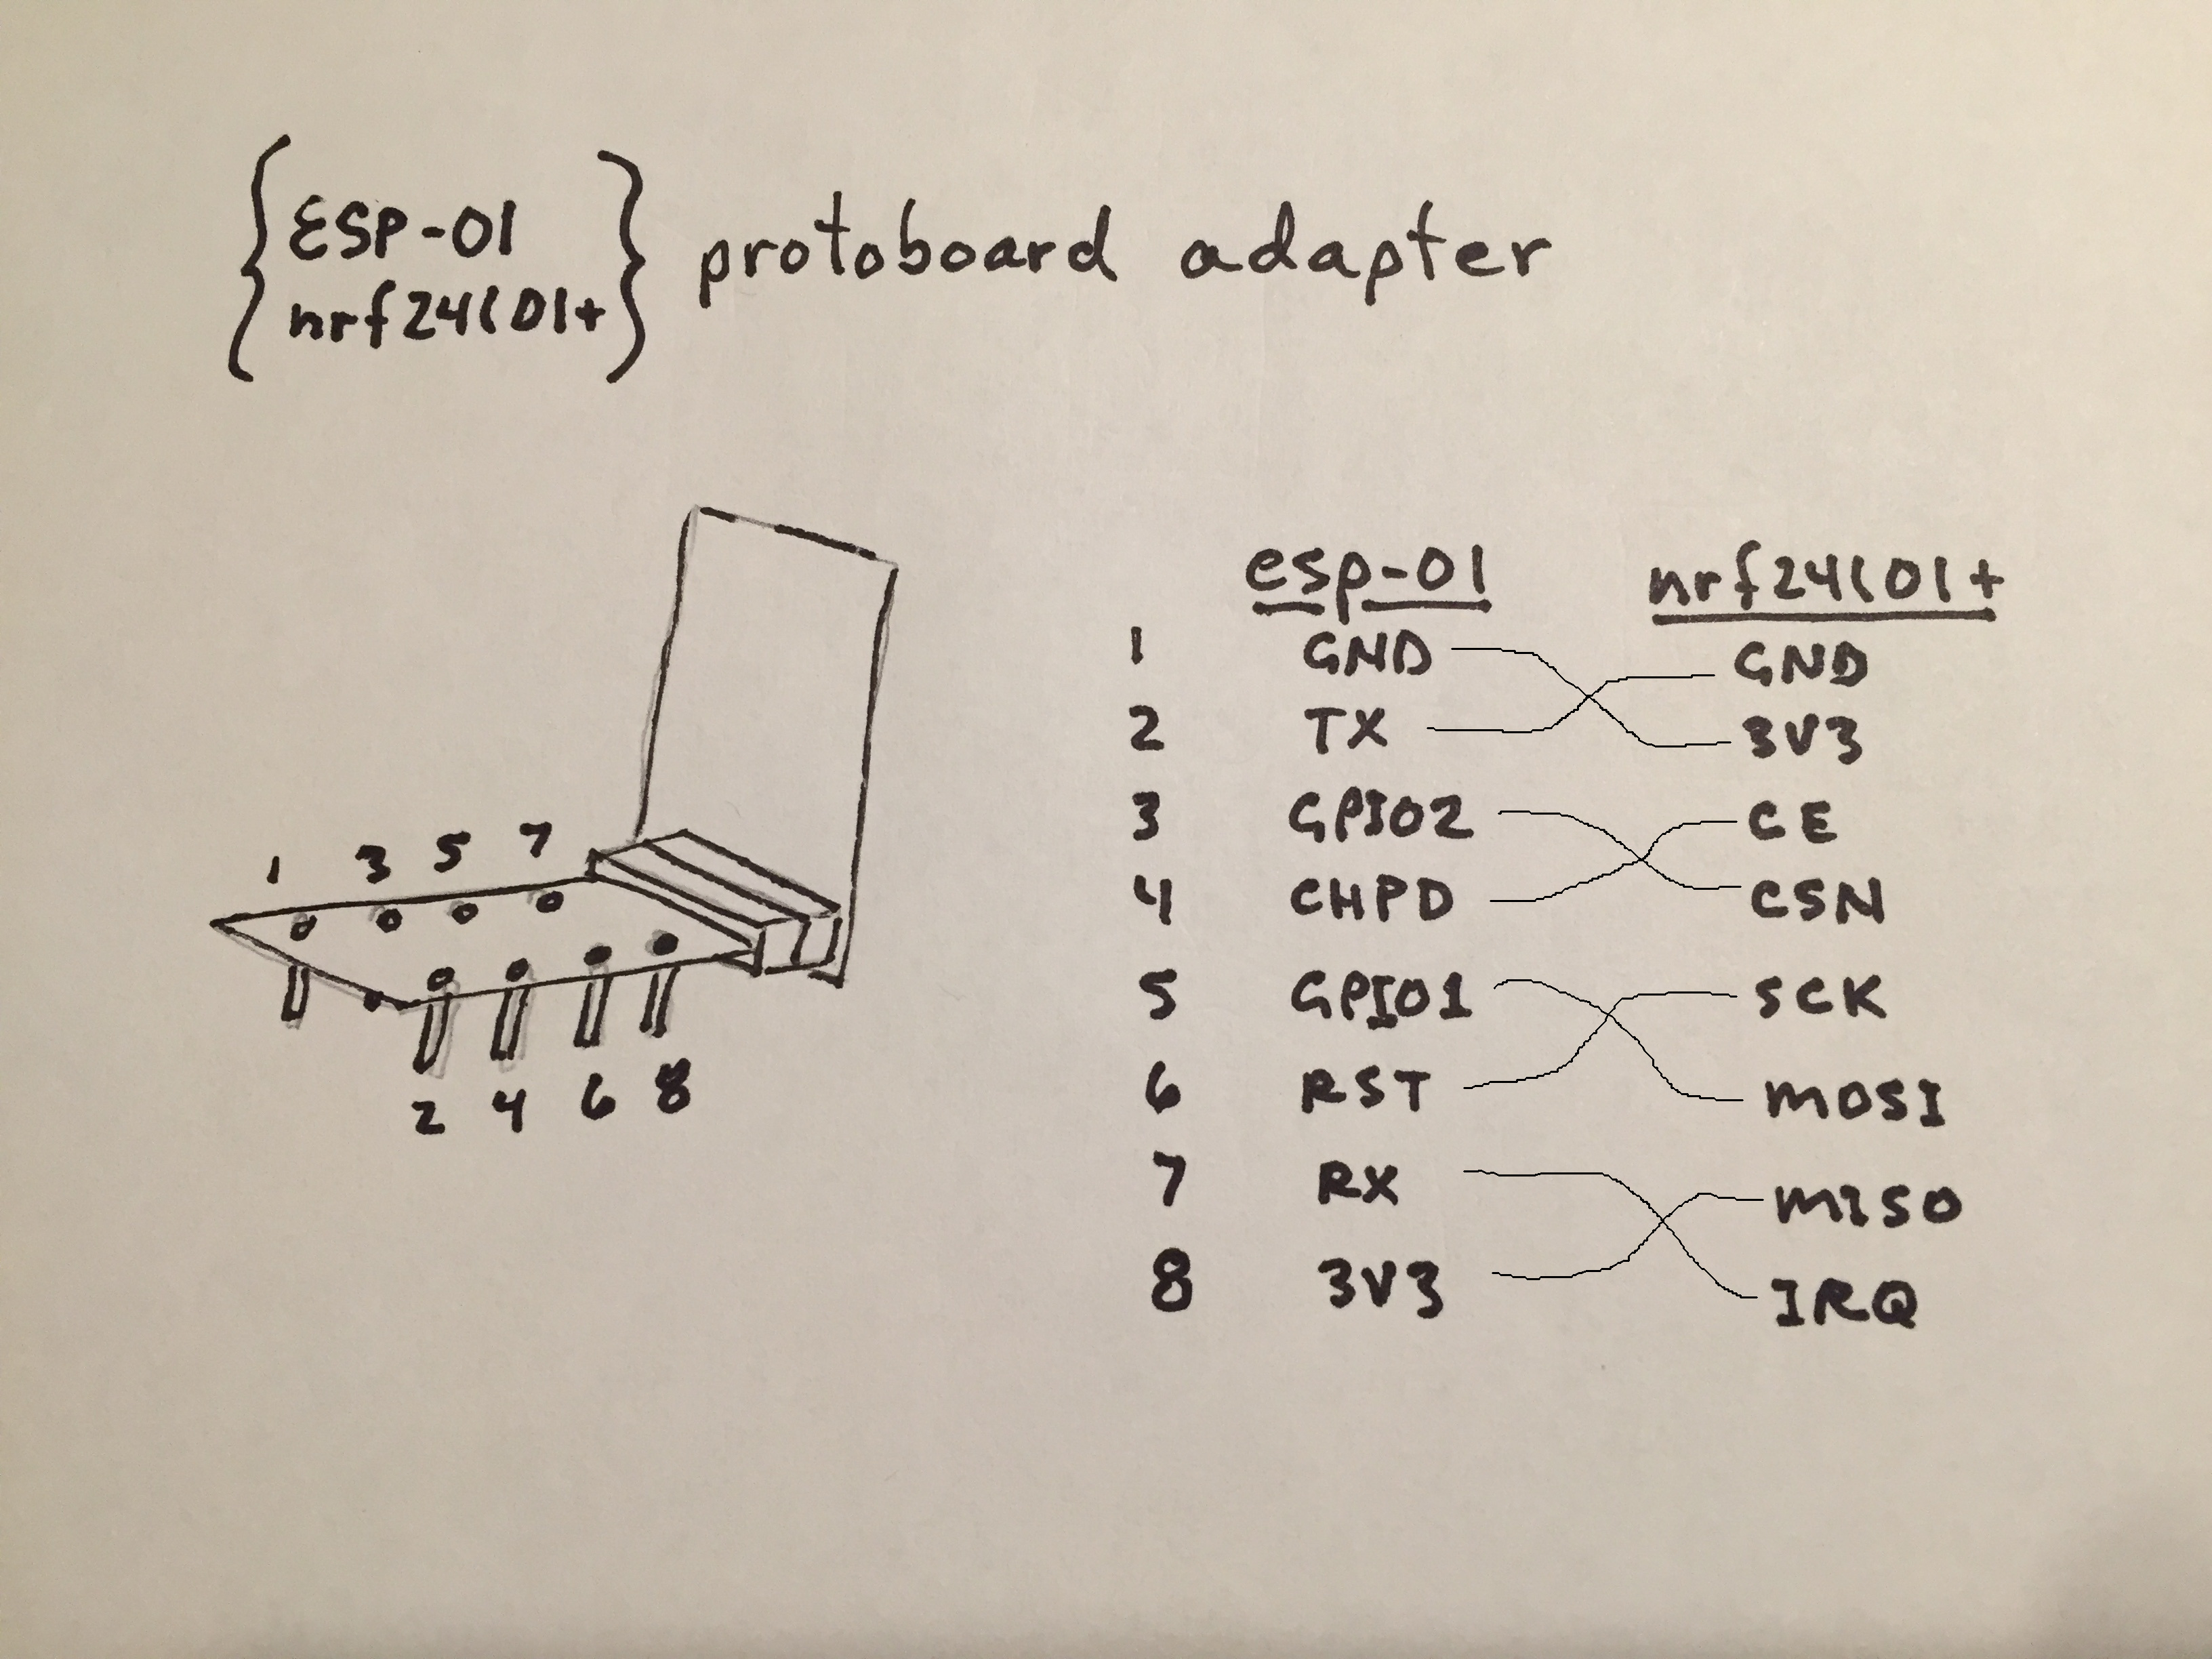 ESP-01
nrf24l01+
protoboard adapter
esp-01 nrf24l01+
1 GND GND
2 TX 3V3
3 GPIO2 CE
4 CHPD CSN
5 GPIO1 SCK
6 RST MOSI
7 RX MISO
8 3V3 IRQ
1 3 5 7
2 4 6 8